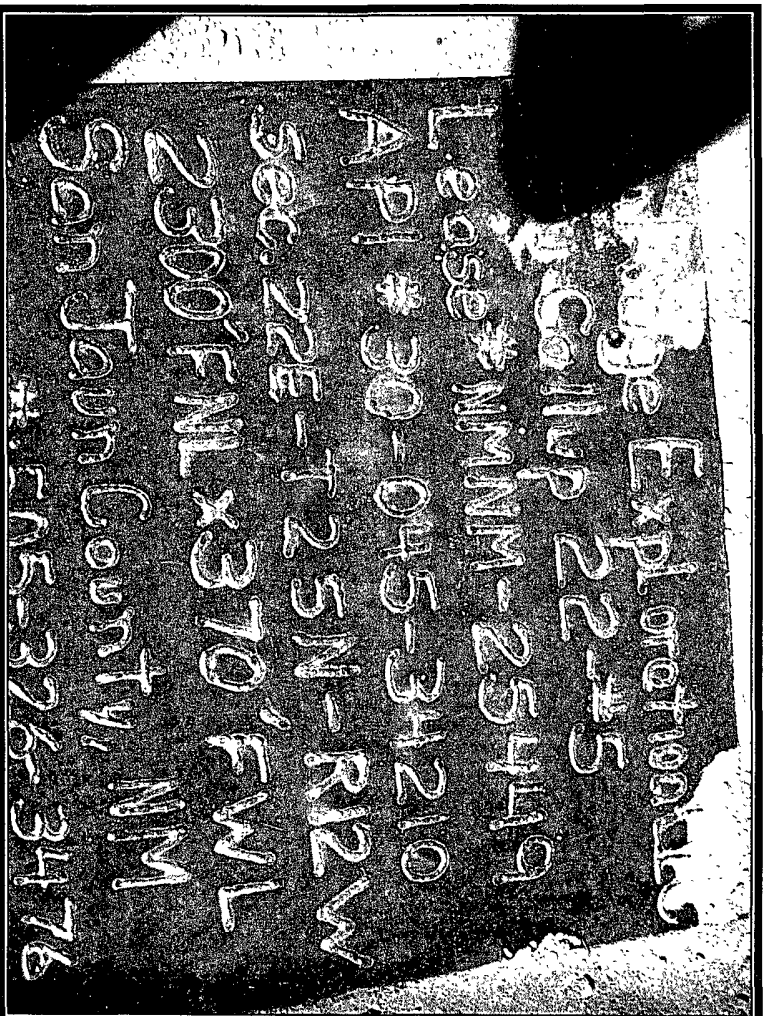 Exploration LLC
Gallup 22-#5
Lease # NMNM-25449
API # 30-045-34210
Sec. 22E-T25N-R12W
2300' FNL x 370' FWL
San Jaun County, NM